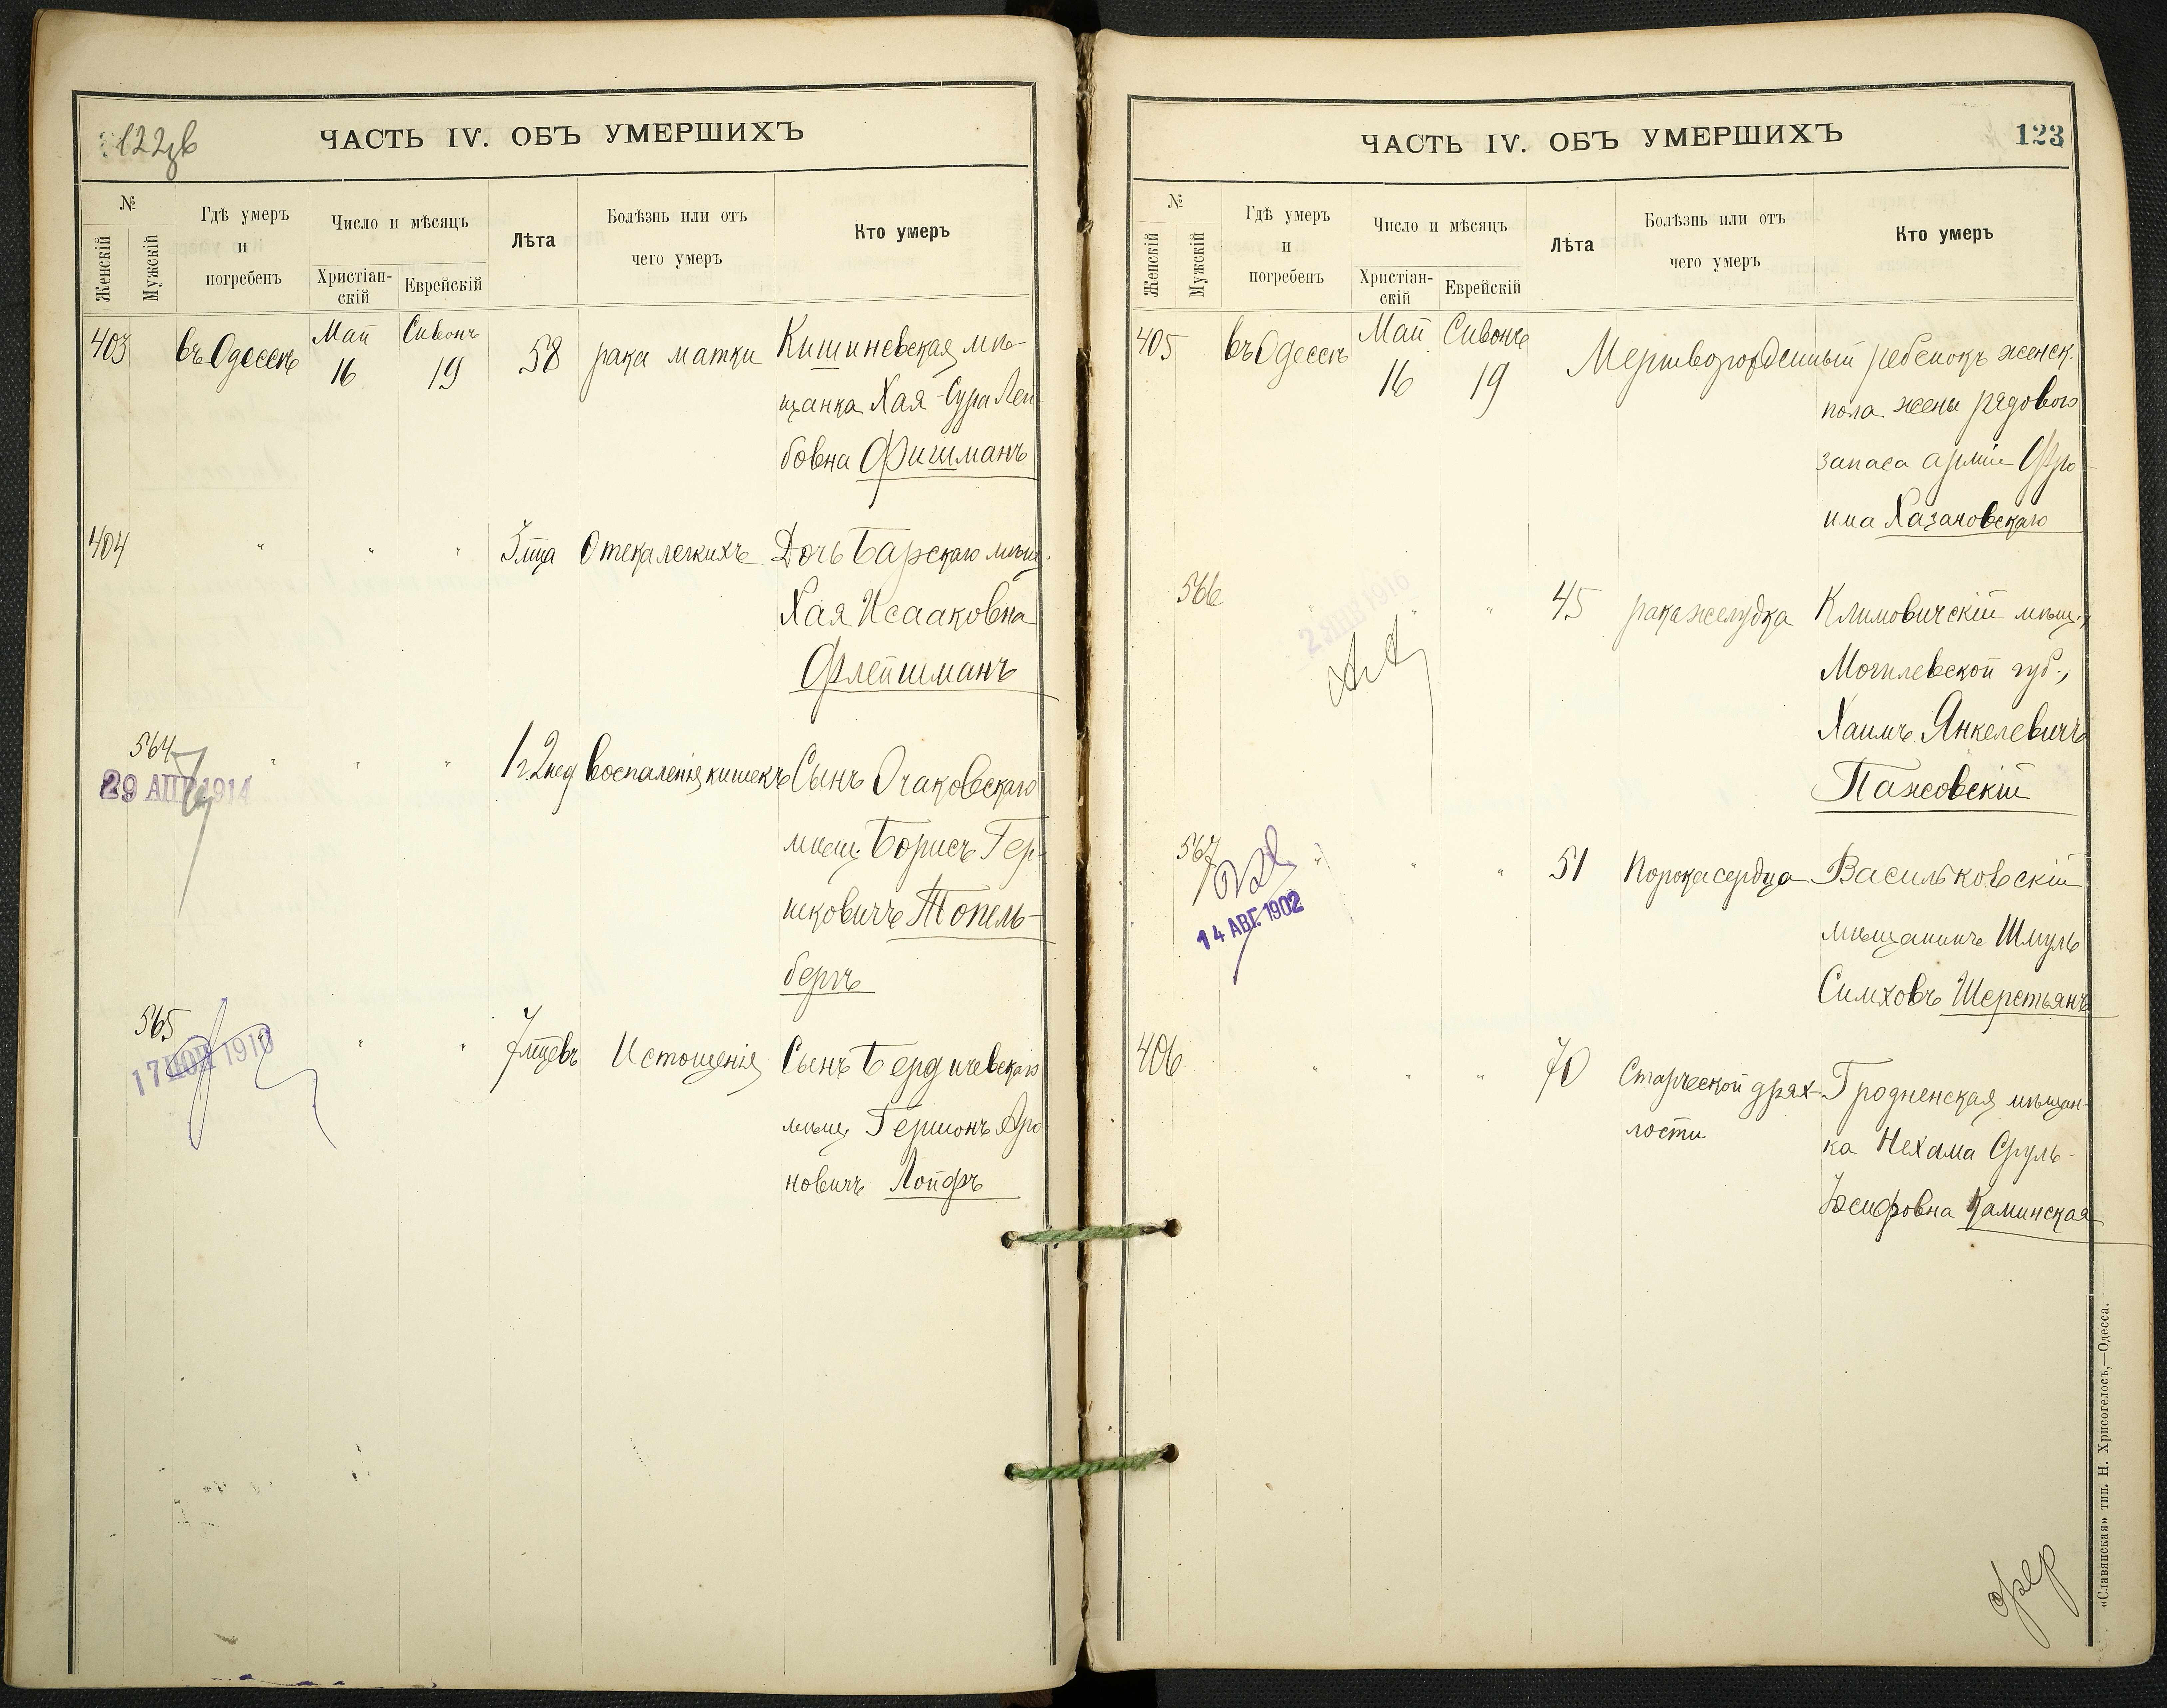 122 об
ЧАСТЬ IV. ОБЪ УМЕРШИХЪ
№
Женскій
Мужскій
Гдѣ умеръ
и
погребенъ
Число и мѣсяцъ
Христіан-
скій
Еврейскій
Лѣта
Болѣзнь или отъ
чего умеръ
Кто умеръ
403 въ Одессѣ Май 16 Сивонъ 19 58 рака матки Кишиневская мѣ-
щанка Хая-Сура Лей-
бовна Фишманъ
404 " " " 3 мца Отека легкихъ Дочь Барскаго мѣщ.
Хая Исааковна
Флейшманъ
564 " " " 1 г 2 нед Воспаленія кишекъ Сынъ Очаковскаго
29 АПР 1914
мѣщ. Борисъ Гер-
шковичъ Топель-
бергъ
565 " " 7 мцевъ Истощенія Сынъ Бердичевскаго
17 1910
мѣщ. Гершонъ Аро
новичъ Лойфъ
ЧАСТЬ IV. ОБЪ УМЕРШИХЪ
123
№
Женскій
Мужскій
Гдѣ умеръ
и
погребенъ
Число и мѣсяцъ
Христіан-
скій
Еврейскій
Лѣта
Болѣзнь или отъ
чего умеръ
Кто умеръ
405 въ Одессѣ Май 16 Сивонъ 19 Мертворожденный ребенокъ женск.
пола жены рядового
запаса арміи Фро-
има Хазановскаго
566 " " " 45 рака желудка Климовичскій мѣщ.,
2 ЯНВ 1916
Могилевской губ.,
Хаимъ Янкелевичъ
Пажовскій
567 " " " 51 Порока сердца Васильковскій
14 АВГ. 1902
мѣщанинъ Шмуль
Симховъ Шерстьянъ
406 " " " 70 Старческой дрях-
лости
Гродненская мѣщан-
ка Нехама Сруль-
Іосифовна Каминская
«Славянская» тип. Н. Хрисогелосъ,—Одесса.